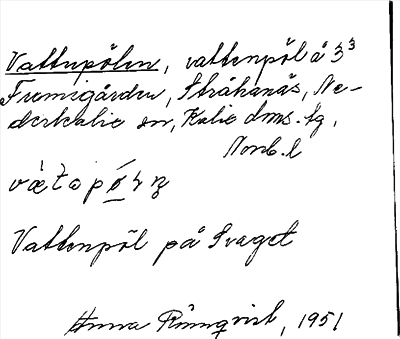 Vattupölen, vattenpöl å 3³
Frumigården, Stråhanäs, Ne-
derkalix sn, Kalix dms. tg,
Norrb. l
Vattenpöl på Svaget
Anna Rönnqvist, 1951